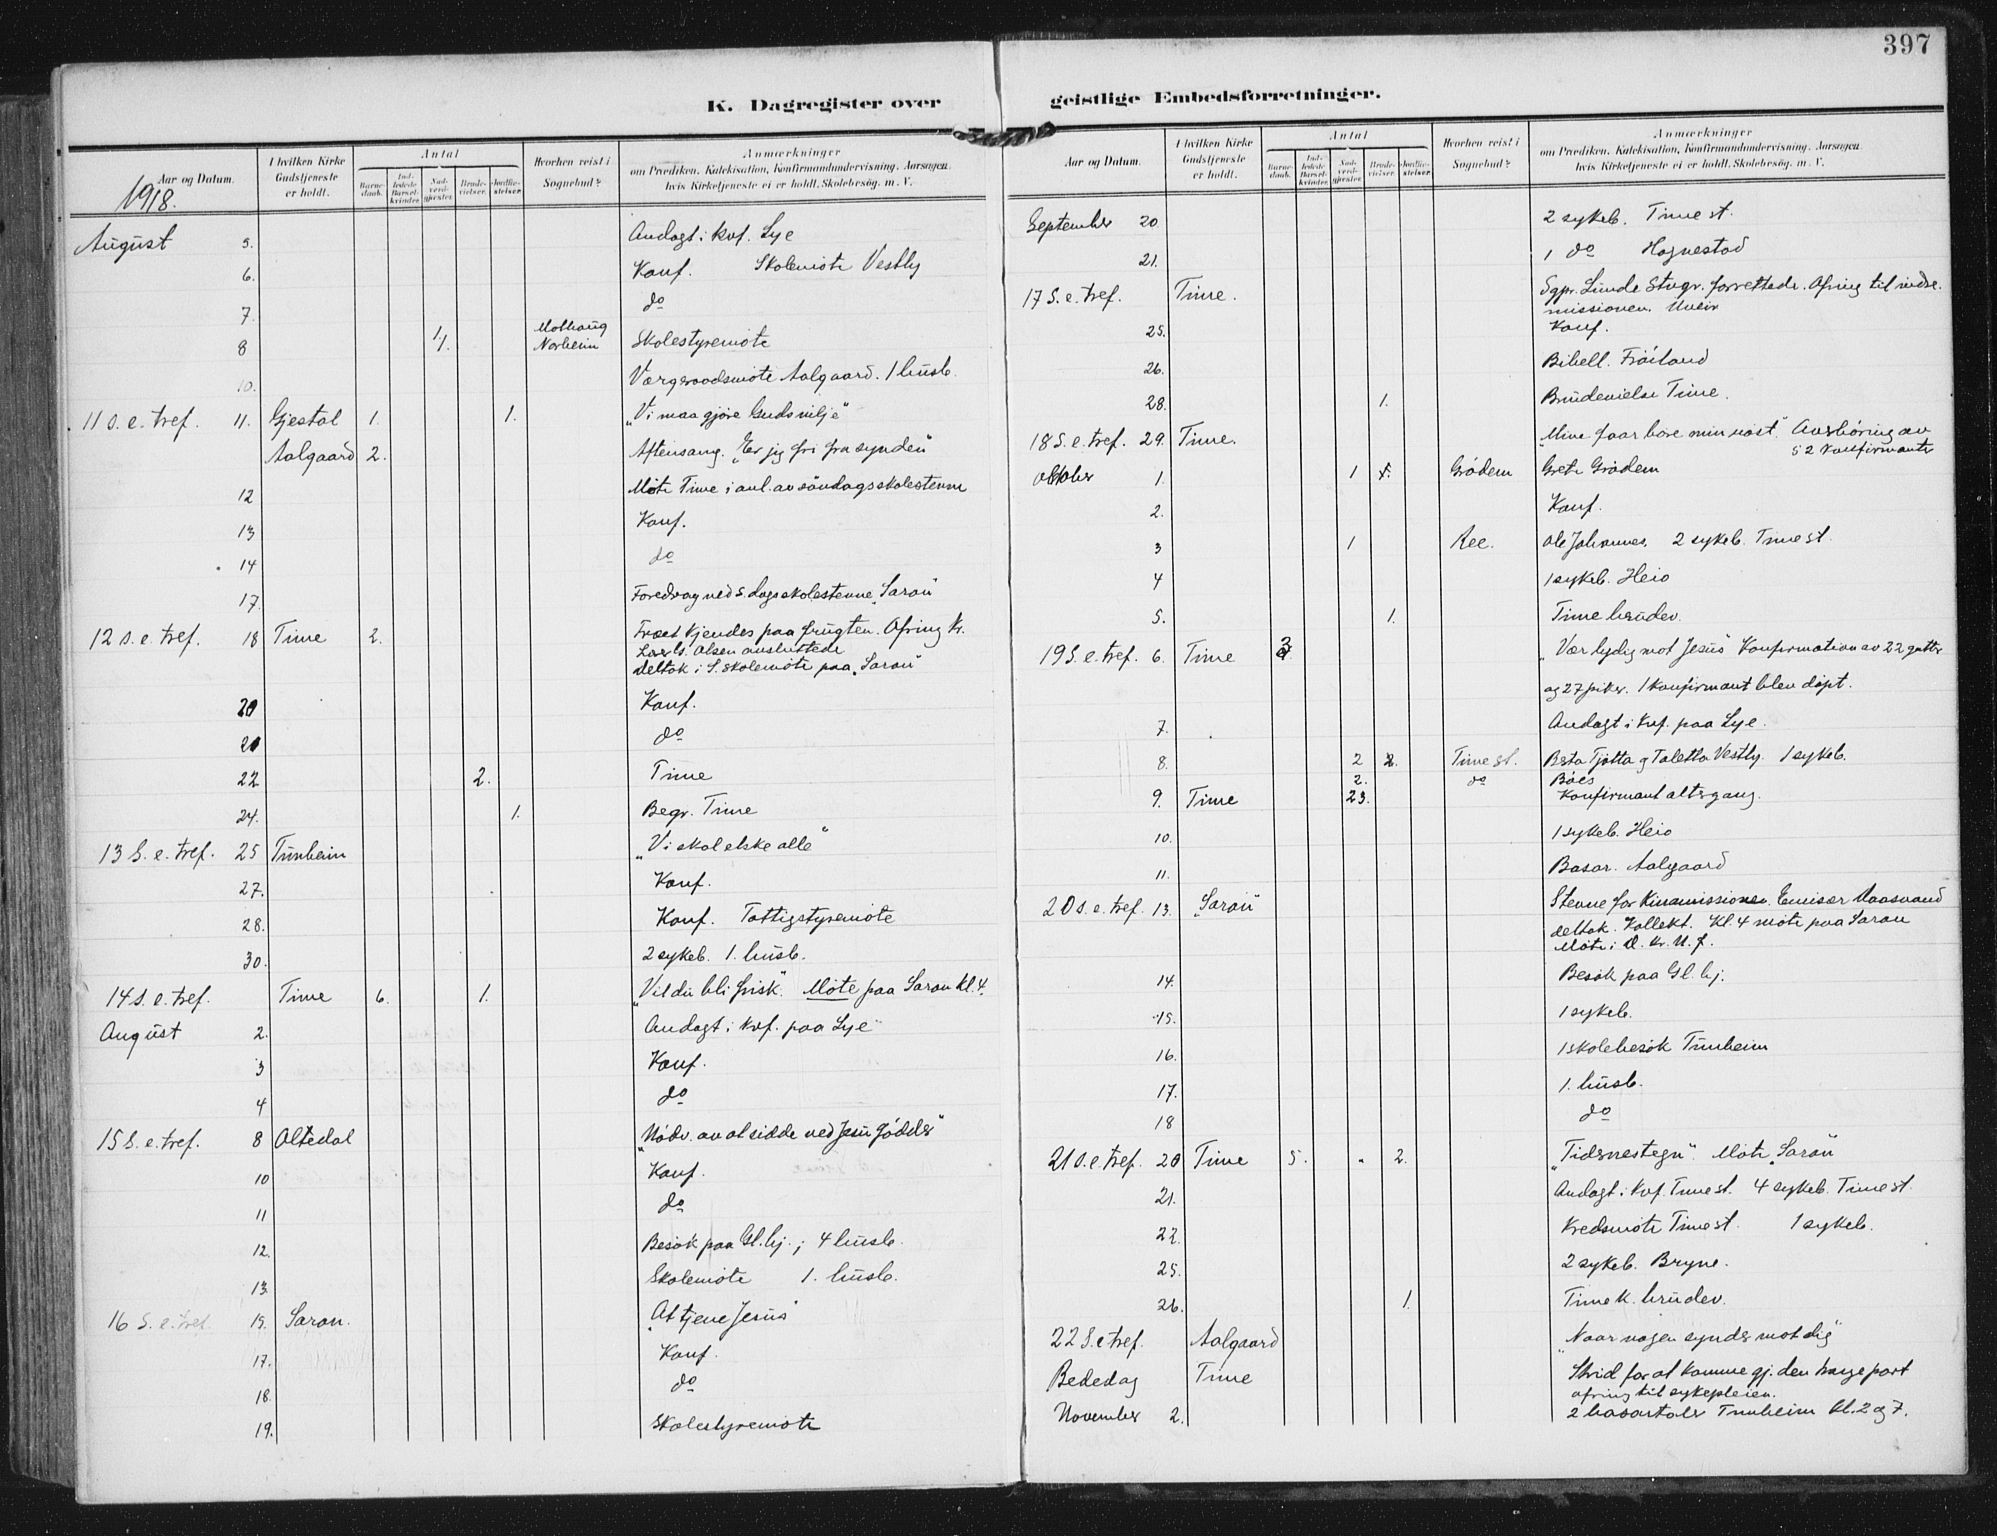 397
K. Dagregister over geistlige Embedsforretninger.
Aar og Datum. I hvilken Kirke Gudstjeneste er holdt. Antal Barnedaab. Indledede Barselkvinder. Nadverdgjester. Brudevielser. Jordfæstelser. Hvorhen reist i Sognebud? Anmærkninger om Prædiken, Katekisation, Konfirmandundervisning, Aarsagen hvis Kirketjeneste ei er holdt, Skolebesög. m. V.
1918.
August 5. Andagt i kvf. Lye
6. Konf. Skolemöte Vestly
7. do
8 1/1. Molhaug Norheim Skolestyremöte
10. Værgeraadsmöte Aalgaard. 1 husb.
11 s. e. tref. 11. Gjestal 1. 1. "Vi maa gjöre Guds vilje"
Aalgaard 2. Aftensang. "Er jeg fri fra synden"
12 Möte Time i anl. av söndagsskolestevne
13 Konf.
14 do
17. Foredrag ved s.dagsskolestevne "Saron"
12 s. e. tref. 18 Time 2. Træet kjendes paa frugten. Ofring Kr.
Olsen avsluttede
deltok i S.skolemöte paa "Saron"
20 Konf.
21 do
22 2. Time
24. 1. Begr. Time
13 S. e. tref. 25 Tunheim "Vi skal elske alle"
27. Konf.
28. Konf. Fattigstyremöte
30. 2 sykeb. 1. husb.
14 s. e. tref. Time 6. 1. "Vil du bli frisk". Möte paa Saron kl. 4.
August 2. Andagt i kvf. paa Lye
3 Konf.
4 do
15 S. e. tref. 8 Oltedal "Nödv. av at sidde ved Jesu födder"
10 Konf.
11 do
12. Besök paa Gl.hj.; 4 husb.
13. Skolemöte 1. husb.
16 S. e. tref. 15. Saron. "At tjene Jesus"
17. Konf.
18. do
19. Skolestyremöte
Aar og Datum. I hvilken Kirke Gudstjeneste er holdt. Antal Barnedaab. Indledede Barselkvinder. Nadverdgjester. Brudevielser. Jordfæstelser. Hvorhen reist i Sognebud? Anmærkninger om Prædiken, Katekisation, Konfirmandundervisning, Aarsagen hvis Kirketjeneste ei er holdt, Skolebesög. m. V.
September 20. 2 sykeb. Time st.
21. 1 do Hognestad
17 S. e. tref. Time. Sgpr. Lunde Stvgr. forrettede. Ofring til indre.
missionen. Uveir
25. Konf.
26. Bibell. Fröiland
28. 1. Brudevielse Time.
18 S. e. tref. 29. Time. "Mine faar höre min röst". Overhöring av
52 konfirmanter
oktober 1. 1 1. Grödem Grete Grödem
2. Konf.
3 1 Ree. Ole Johannes. 2 sykeb. Time st.
4 1 sykeb. Heio
5. 1. Time brudev.
19 S. e. tref. 6. Time 3 "Vær lydig mot Jesus" Konfirmation av 22 gutter
og 27 piker. 1 konfirmant blev döpt.
7. Andagt i kvf. paa Lye.
8. 2 2. Time st. Berta Tjötta og Taletta Vestly. 1 sykeb.
2. do Böes
9. Time 23. Konfirmant altergang.
10. 1 sykeb. Heio
11. Basar. Aalgaard
20 s. e. tref. 13. "Saron" Stevne for Kinamissionen. Emisær
deltok. Kollekt. Kl. 4 möte paa Saron
Möte i D. Kr. U. f.
14. Besök paa Gl. hj.
15. 1 sykeb.
16. 1 skolebesök Tunheim
17. 1. husb.
18 do
21 s. e. tref. 20 Time 5. 2. "Tidernes tegn". Möte "Saron"
21. Andagt i kvf. Time st. 4 sykeb. Time st.
22. Kredsmöte Time st. 1 sykeb.
25. 2 sykeb. Bryne.
26. 1. Time k. brudev.
22 S. e tref. Aalgaard "Naar nogen synder mot dig"
Bededag Time Strid for at komme gj. den trange port
ofring til sykepleien.
November 2. 2 basartaler Tunheim kl. 2 og 7.